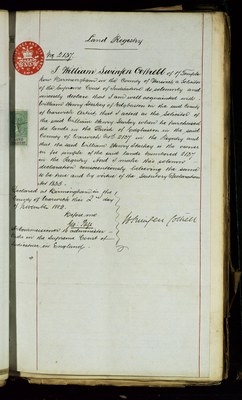 Land Registry
No 2137.
I William Swinfen Cottrell of 47 Temple
Row Birmingham in the County of Warwick a Solicitor
of the Supreme Court of Judicature do solemnly and
sincerely declare that I am well acquainted with
William Henry of Edgbaston in the said County
of Warwick that I acted as the Solicitor of
the said William Henry when he purchased
the lands in the Parish of Edgbaston in the said
County of Warwick No 2137 in the Registry and
that the said William Henry is the owner
in fee simple of the said lands numbered 2137
in the Registry And I make this solemn
declaration conscientiously believing the same
to be true and by virtue of the Statutory Declarations
Act 1835.
Declared at Birmingham in the
County of Warwick this 2nd day
of November
Before me
W Swinfen Cottrell
A Commissioner to administer
Oaths in the Supreme Court of
Judicature in England.